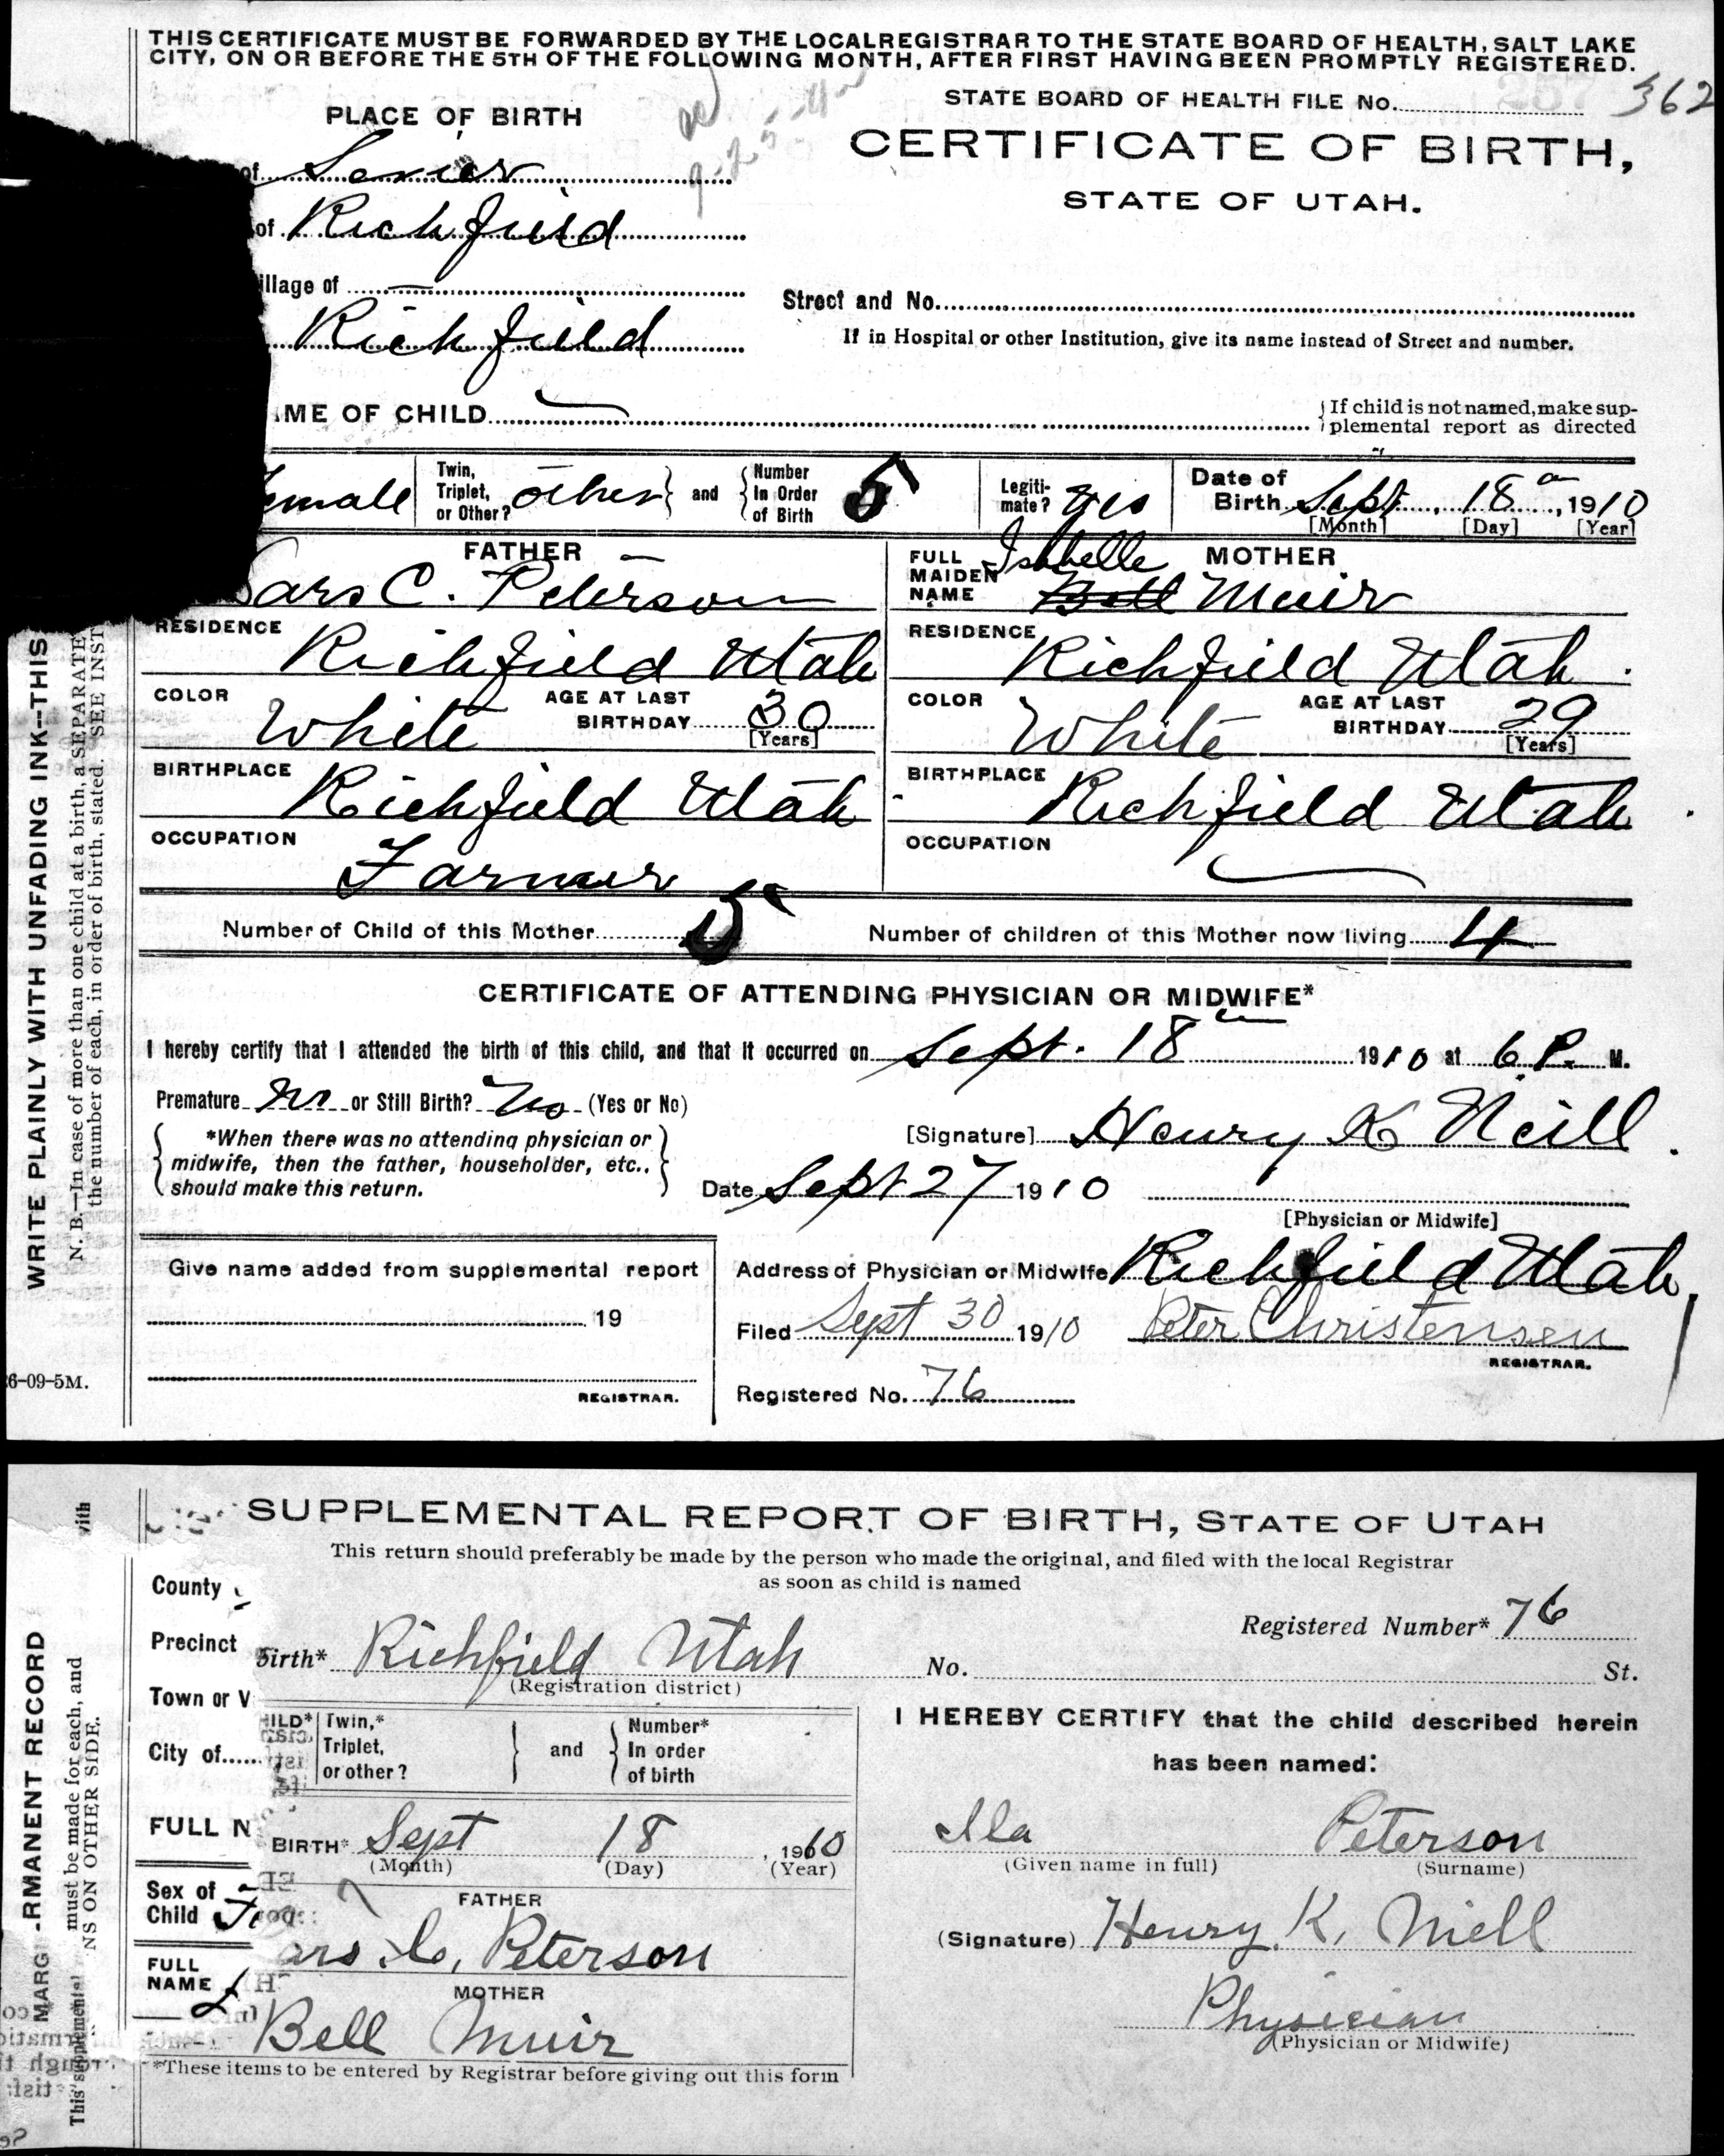 THIS CERTIFICATE MUST BE FORWARDED BY THE LOCAL REGISTRAR TO THE STATE BOARD OF HEALTH, SALT LAKE
CITY, ON OR BEFORE THE 5TH OF THE FOLLOWING MONTH, AFTER FIRST HAVING BEEN PROMPTLY REGISTERED.
STATE BOARD OF HEALTH FILE No. 362
PLACE OF BIRTH
9-25-4
CERTIFICATE OF BIRTH,
STATE OF UTAH.
of Sevier
of Richfield
illage of —
Richfield
Street and No.
If in Hospital or other Institution, give its name instead of Street and number.
AME OF CHILD
If child is not named, make sup-
plemental report as directed
emale
Twin, Triplet, or Other? other and Number In Order of Birth 5
Legiti-mate? Yes
Date of Birth Sept. 18, 1910
[Month] [Day] [Year]
FATHER
Lars C. Peterson
FULL MAIDEN NAME MOTHER
Isabelle
Bell Muir
RESIDENCE Richfield Utah
RESIDENCE Richfield Utah.
COLOR White AGE AT LAST BIRTHDAY 30 [Years]
COLOR White AGE AT LAST BIRTHDAY 29 [Years]
BIRTHPLACE Richfield Utah
BIRTHPLACE Richfield Utah.
OCCUPATION Farmer
OCCUPATION
Number of Child of this Mother 5 Number of children of this Mother now living 4
CERTIFICATE OF ATTENDING PHYSICIAN OR MIDWIFE*
I hereby certify that I attended the birth of this child, and that it occurred on Sept. 18 1910 at 6 P. M.
Premature No or Still Birth? No (Yes or No)
*When there was no attending physician or
midwife, then the father, householder, etc.,
should make this return.
[Signature] Henry K Neill.
Date Sept 27 1910
[Physician or Midwife]
Give name added from supplemental report
19
REGISTRAR.
Address of Physician or Midwife Richfield Utah.
Filed Sept 30 1910 Peter Christensen
REGISTRAR.
Registered No. 76
WRITE PLAINLY WITH UNFADING INK--THIS
N. B.—In case of more than one child at a birth, a SEPARATE
the number of each, in order of birth, stated. SEE INST
6-09-5M.
SUPPLEMENTAL REPORT OF BIRTH, STATE OF UTAH
This return should preferably be made by the person who made the original, and filed with the local Registrar
as soon as child is named
County
Precinct
Town or V
City of
FULL N
Sex of Child Fe
FULL NAME L
Registered Number* 76
Birth* Richfield Utah No. St.
(Registration district)
HILD* Twin,* Triplet, or other? and Number* In order of birth
BIRTH* Sept 18, 1910
(Month) (Day) (Year)
FATHER
ars C. Peterson
MOTHER
Bell Muir
*These items to be entered by Registrar before giving out this form
I HEREBY CERTIFY that the child described herein
has been named:
Ila Peterson
(Given name in full) (Surname)
(Signature) Henry K. Niell
Physician
(Physician or Midwife)
MARG
RMANENT RECORD
This supplemental
must be made for each, and
NS ON OTHER SIDE.
with